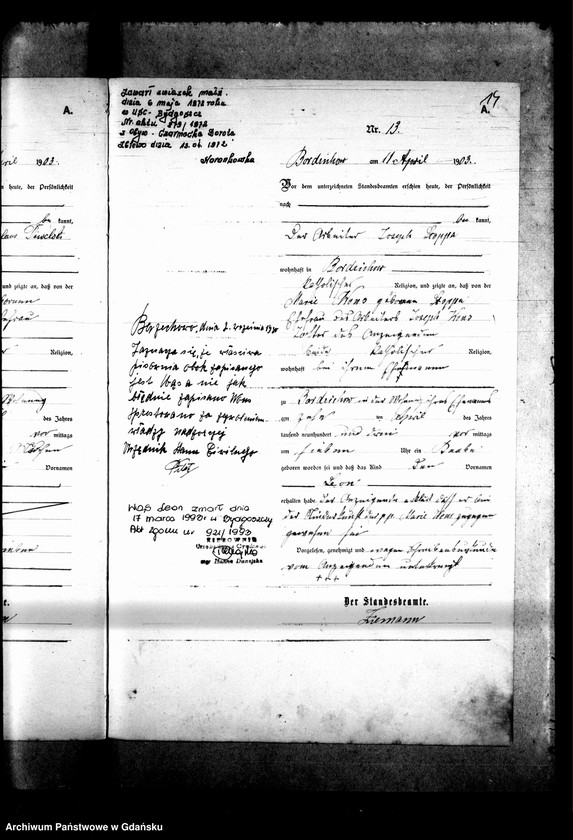 A.
April 1903.
n heute, der Persönlichkeit
kannt,
und zeigte an, daß von der
Religion,
des Jahres
vor mittags
Vornamen
Zawarł związek małż.
dnia 6 maja 1972 roku
w USC - Bydgoszcz
Nr. aktu 879/1972
z Obyw. Czarnocka Dorota
dnia 12.05.1972
17
A.
Nr. 13.
Bordzichow am 11 April 1903.
Vor dem unterzeichneten Standesbeamten erschien heute, der Persönlichkeit
nach
kannt,
Der Arbeiter Joseph Stoppa
wohnhaft in Bordzichow
katholischer Religion, und zeigte an, daß von der
Marie Wons geborenen Stoppa
Ehefrau des Arbeiters Joseph Wons
Tochter des Anzeigenden
katholischer Religion,
wohnhaft bei ihrem Ehemann
zu Bordzichow in der Wohnung ihres Ehemanns
am zehn ten April des Jahres
tausend neunhundert und drei vor mittags
um sieben Uhr ein Knabe
geboren worden sei und daß das Kind den Vornamen
Leon
erhalten habe. Der Anzeigende erklärt daß er bei
der Niederkunft der p.p. Marie Wons zugegen
gewesen sei
Vorgelesen, genehmigt und wegen Schreibensunkunde
vom Anzeigenden unterkreuzt
+++
Der Standesbeamte.
Ziemann
dnia 2. września 19
Zaznacza się, że właściwa
pisownia obok zapisanego
jest Wąs a nie jak
błędnie zapisano Wons
Sprostowano za zezwoleniem
władzy nadzorczej
Urzędnik Stanu Cywilnego
Wąs Leon zmarł dnia
17 marca 1993 r. w Bydgoszczy
Akt zgonu nr 921/1993
KIEROWNIK
mgr Hanna
Archiwum Państwowe w Gdańsku